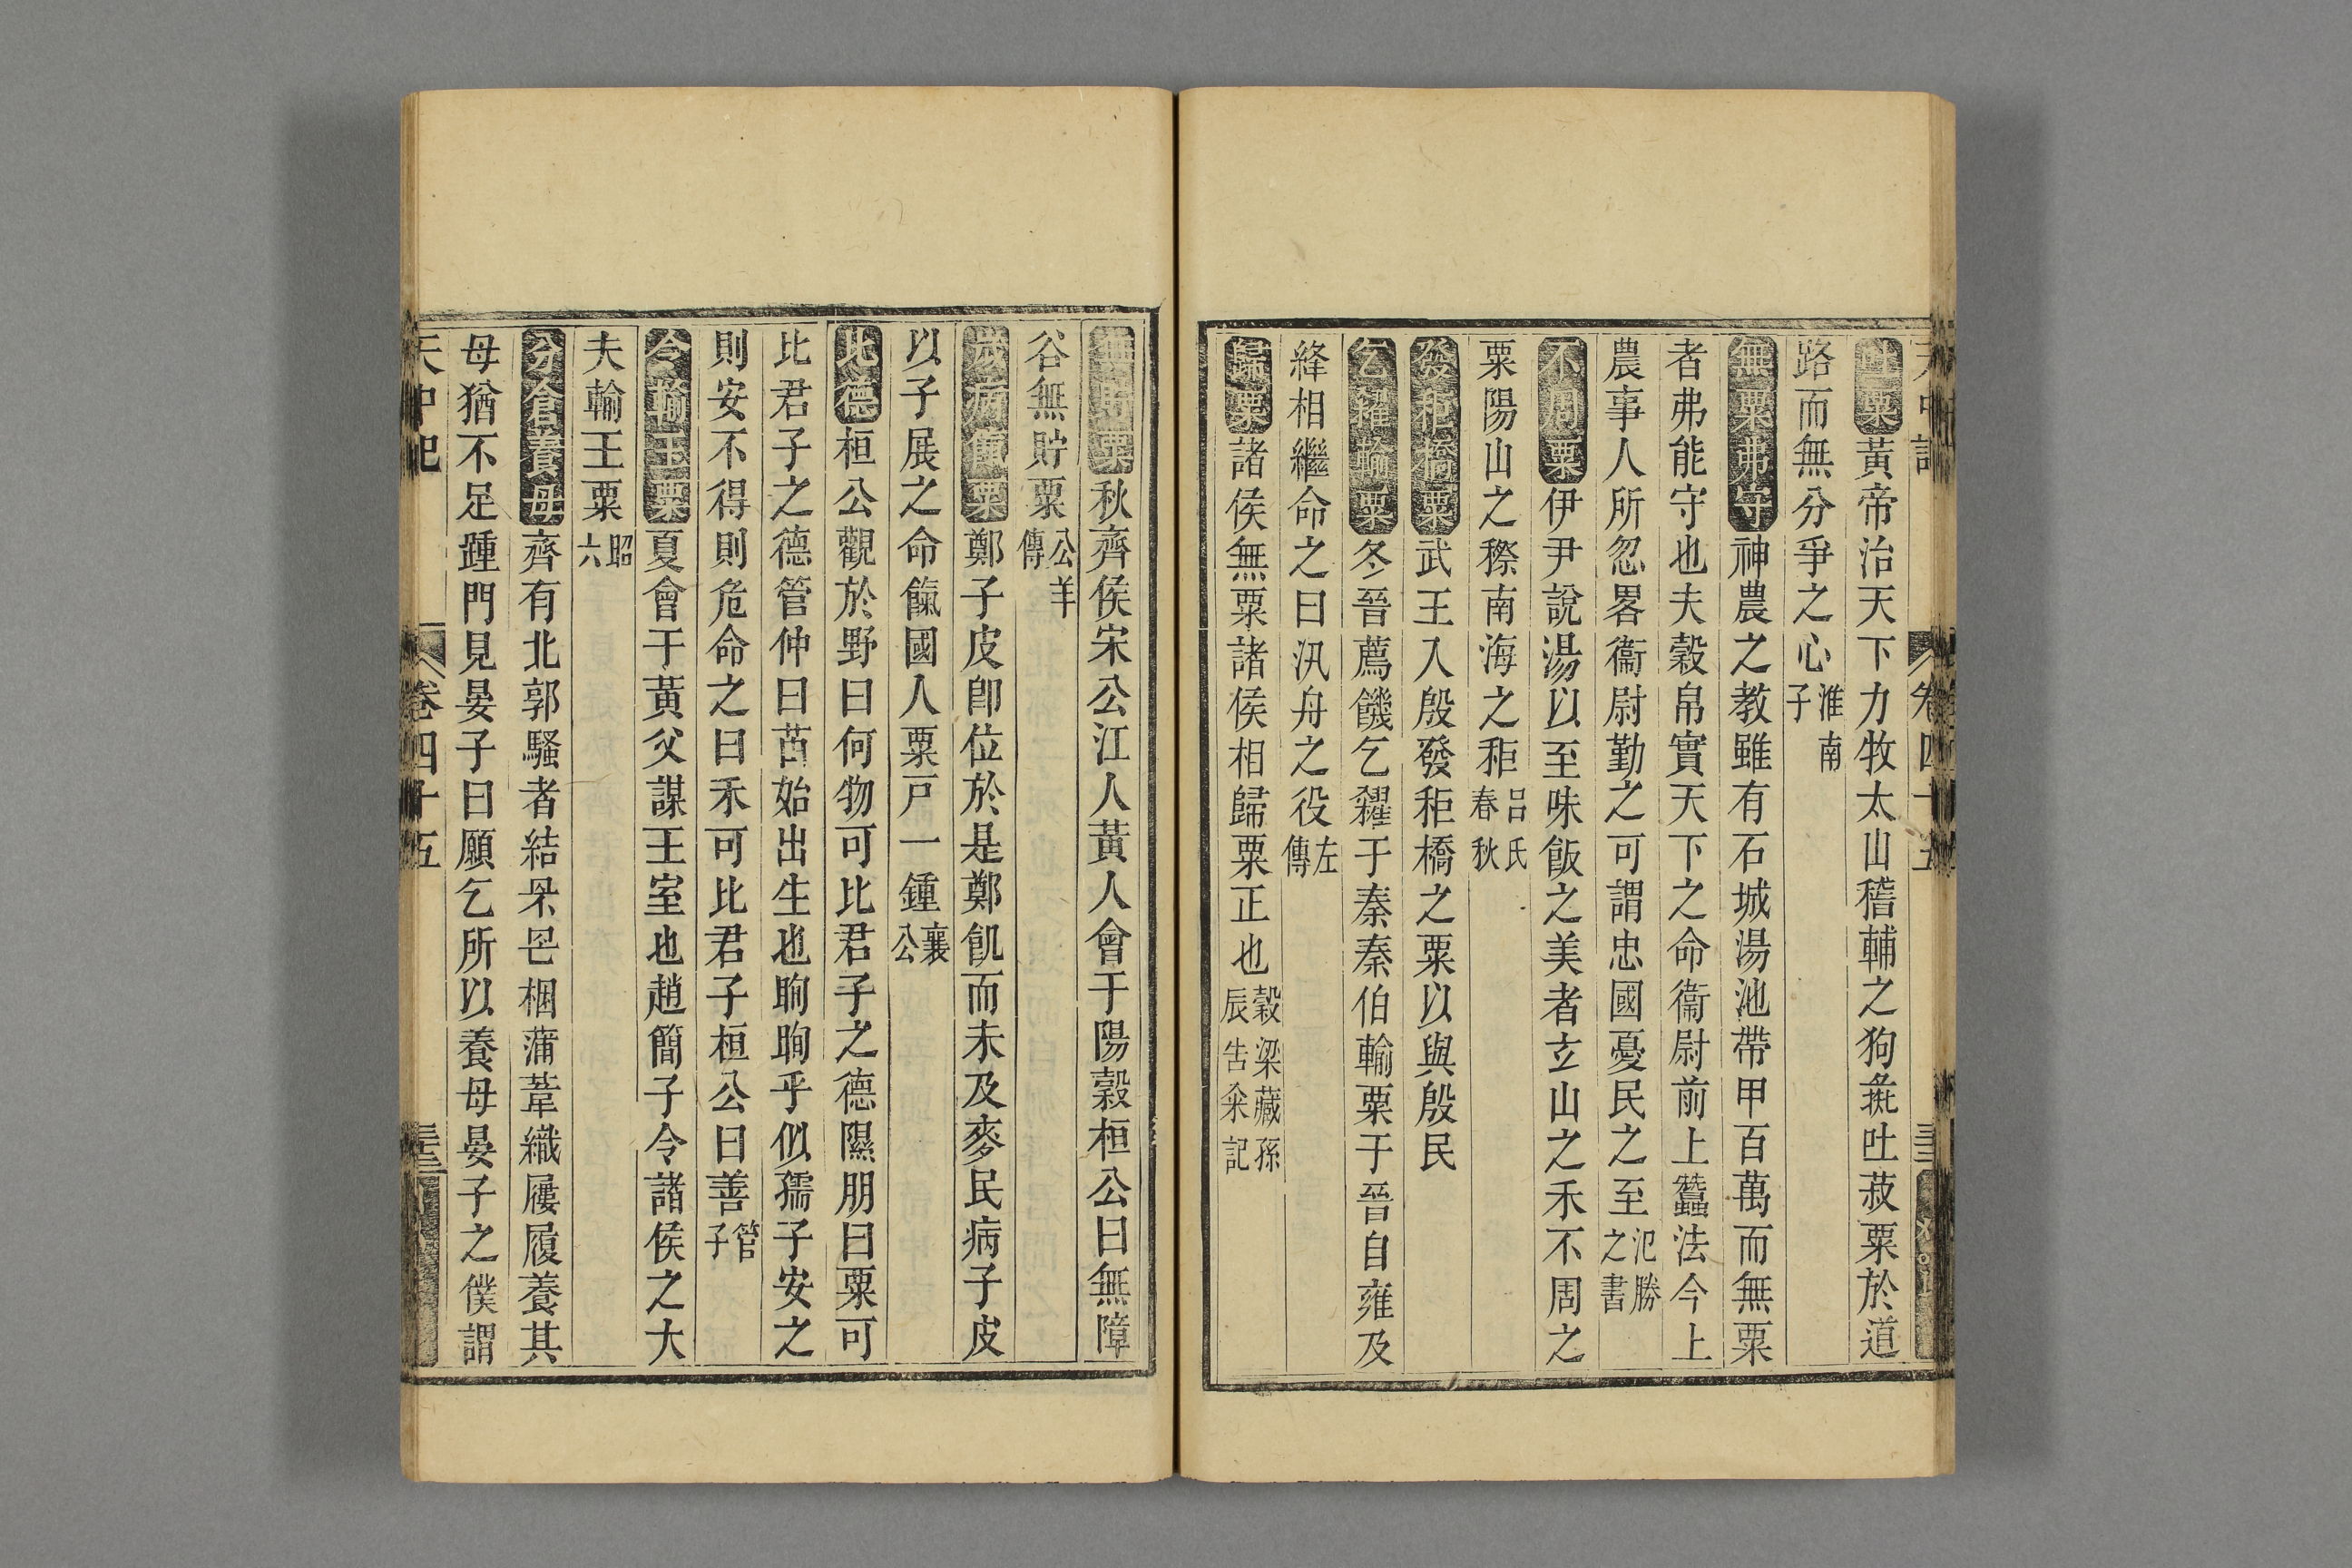 吐粟黃帝治天下力牧太山稽輔之狗彘吐菽粟於道
路而無分爭之心淮南子
無粟弗守神農之教雖有石城湯池帶甲百萬而無粟
者弗能守也夫穀帛實天下之命衞尉前上蠶法今上
農事人所忽畧衞尉勤之可謂忠國憂民之至氾勝之書
不周粟伊尹說湯以至味飯之美者玄山之禾不周之
粟陽山之穄南海之秬呂氏春秋
發秬橋粟武王入殷發秬橋之粟以與殷民
乞糴輸粟冬晉薦饑乞糴于秦秦伯輸粟于晉自雍及
絳相繼命之曰汎舟之役左傳
歸粟諸侯無粟諸侯相歸粟正也穀梁臧孫辰告糴記
無貯粟秋齊侯宋公江人黃人會于陽穀桓公曰無障
谷無貯粟公羊傳
歲病餼粟鄭子皮卽位於是鄭飢而未及麥民病子皮
以子展之命餼國人粟戸一鍾襄公
比德桓公觀於野曰何物可比君子之德隰朋曰粟可
比君子之德管仲曰苗始出生也眴眴乎似孺子安之
則安不得則危命之曰禾可比君子桓公曰善管子
令輸王粟夏會于黃父謀王室也趙簡子令諸侯之大
夫輸王粟昭六
分倉養母齊有北郭騷者結罘罔梱蒲葦織屨履養其
母猶不足踵門見晏子曰願乞所以養母晏子之僕謂
天中記 卷四十五